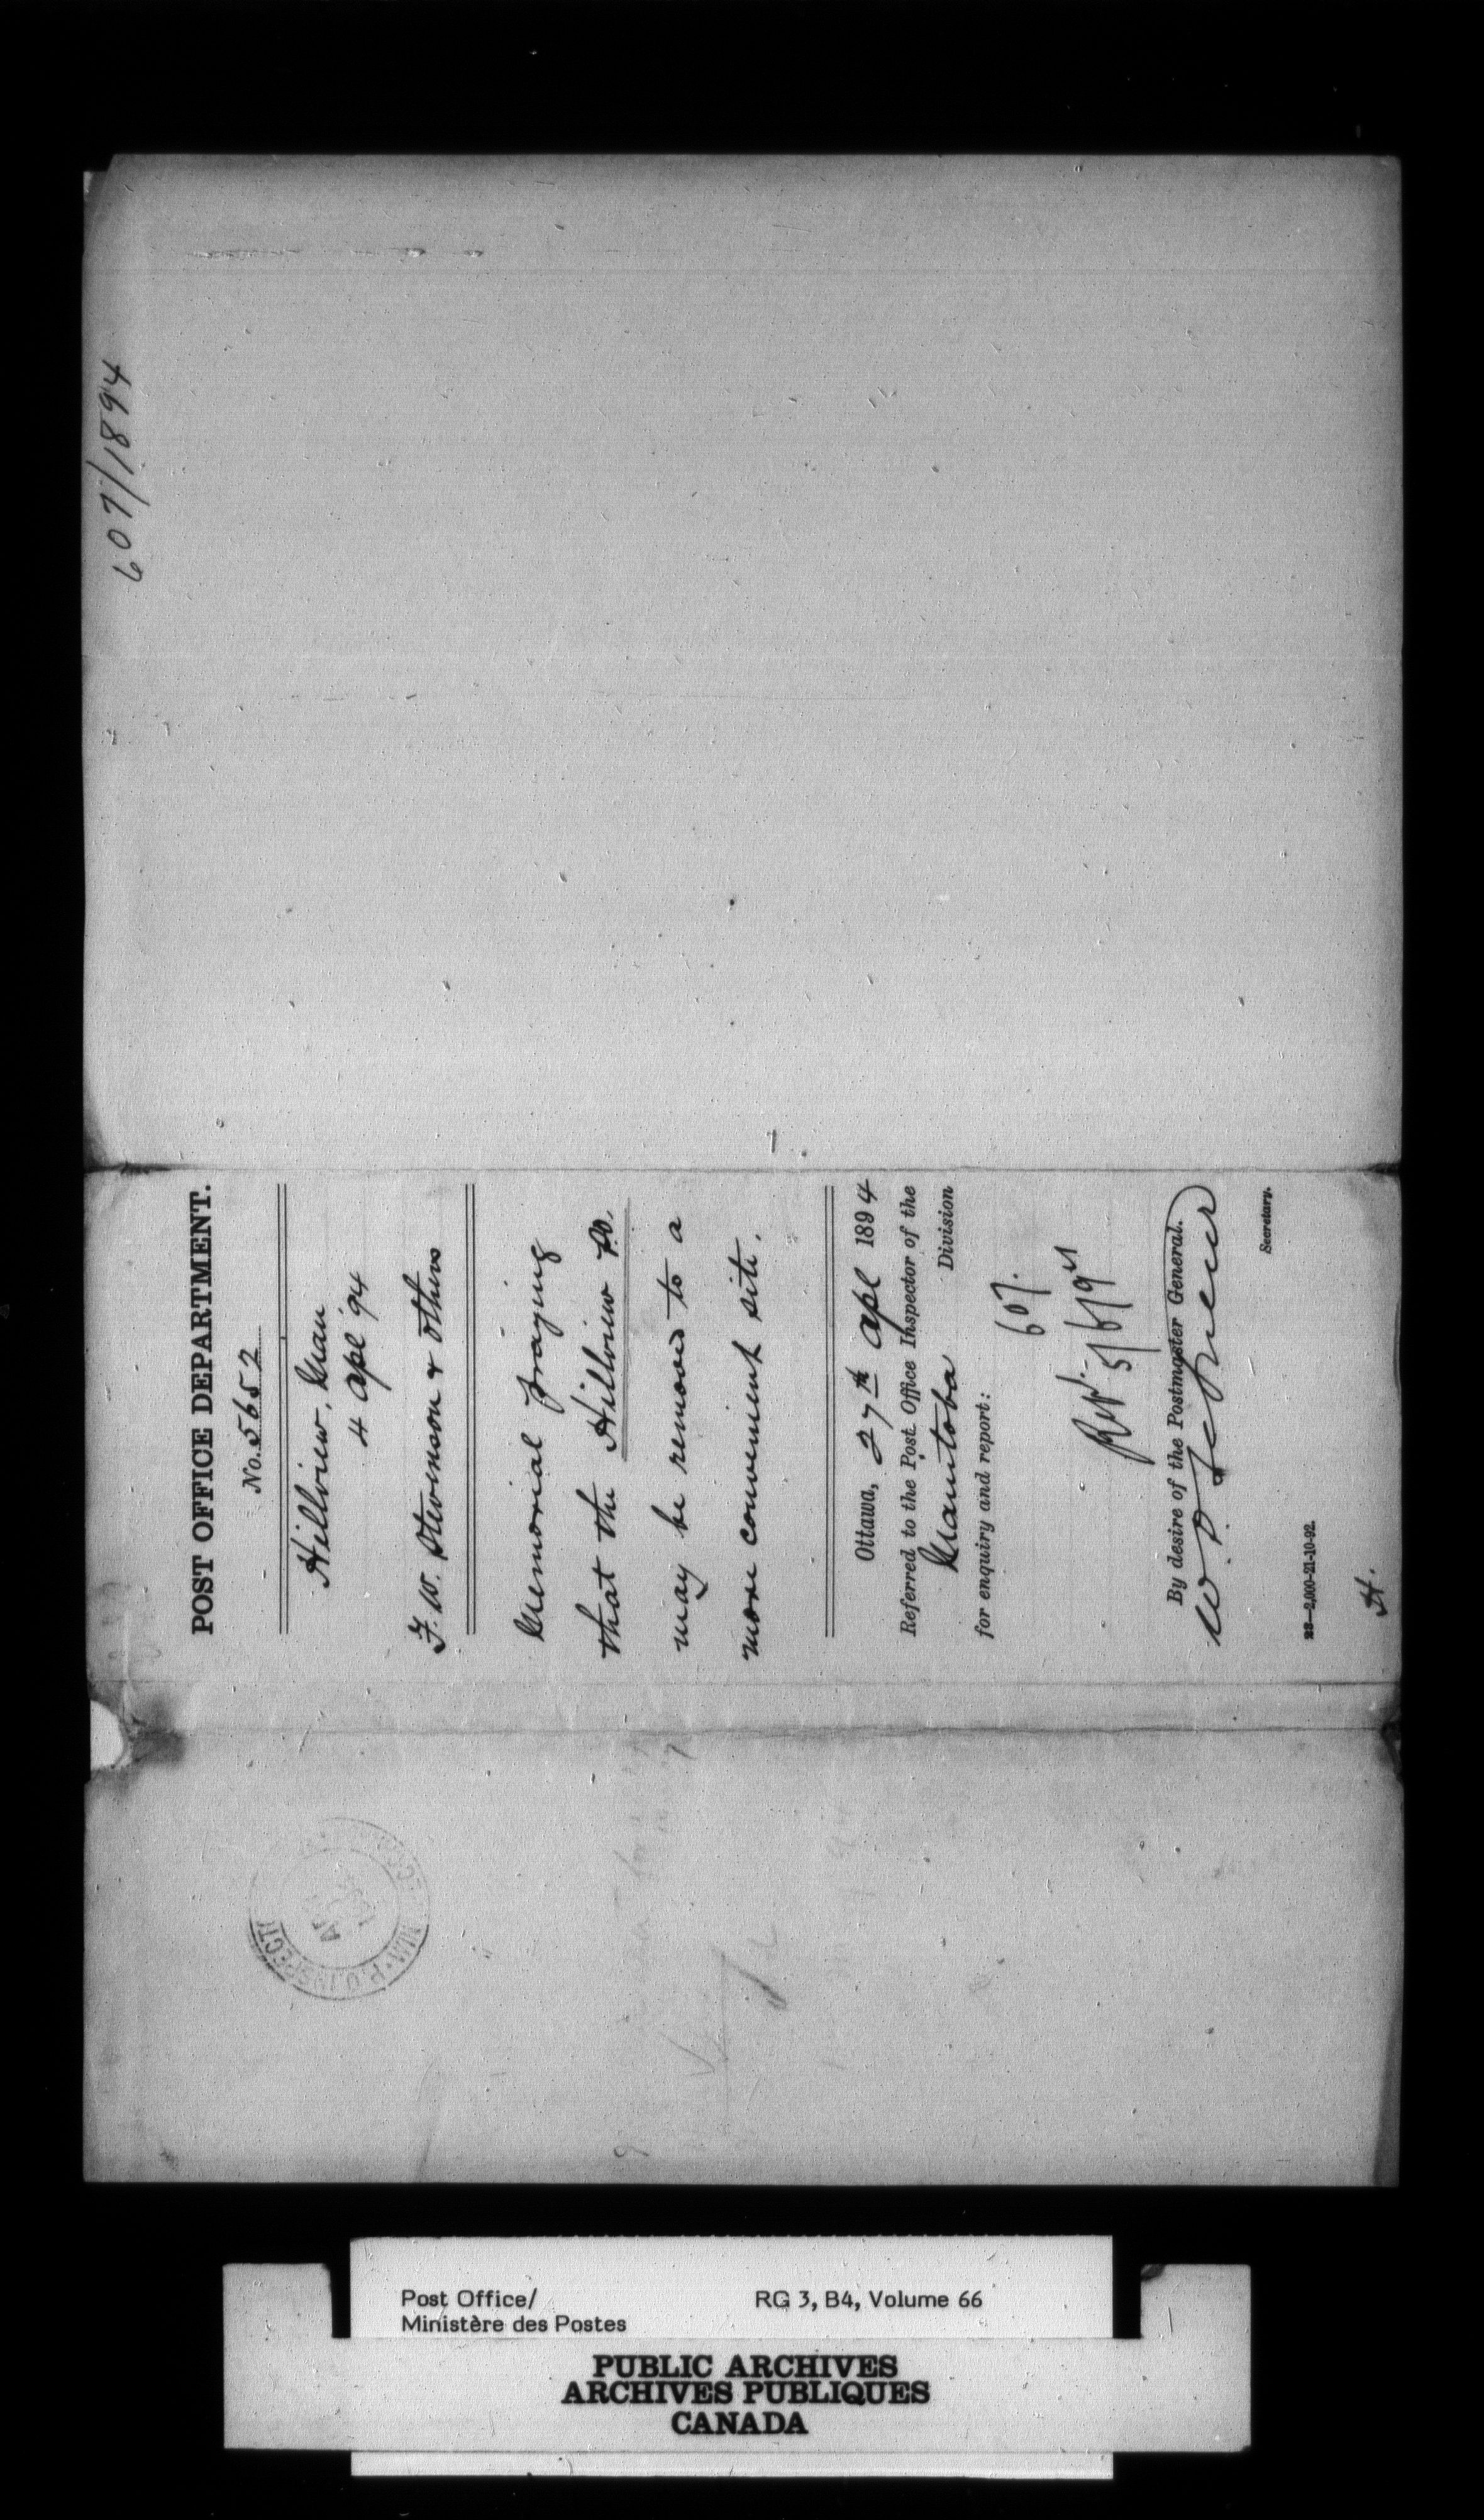 607/1894
POST OFFICE DEPARTMENT.
No. 5652
Hillview, Man
4 Apl '94
F. W. Stevenson & others
Memorial praying
that the Hillview P.O.
may be removed to a
more convenient site.
Ottawa, 27th Apl 1894
Referred to the Post Office Inspector of the
Manitoba Division
for enquiry and report:
607.
By desire of the Postmaster General.
Secretary.
28—2,000-21-10-92.
H.
P.O. INSPECTO
Post Office/
Ministère des Postes
RG 3, B4, Volume 66
PUBLIC ARCHIVES
ARCHIVES PUBLIQUES
CANADA